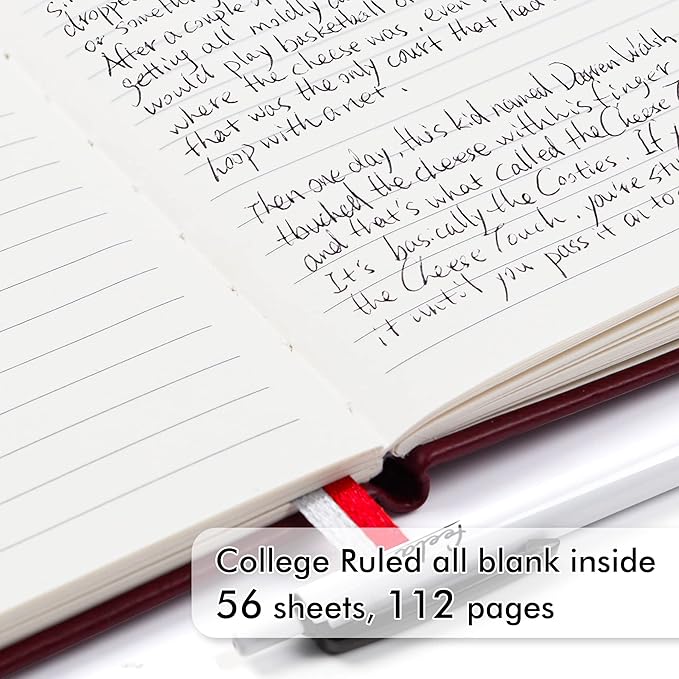 dropped
or some
After a couple
getting all moldy a
would play basketball o
where the cheese was, even
that was the only court that had
hoop with a net.
Then one day, this kid named Darren Walsh
touched the cheese with his finger
and that's what called the Cheese T
It's basically the Cooties. If y
the Cheese Touch, you're stu
it until you pass it on to
feela
College Ruled all blank inside
56 sheets, 112 pages